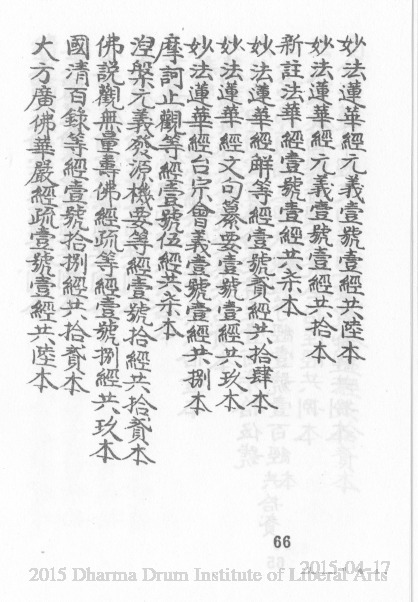 妙法蓮華經元義壹號壹經共陸本
妙法蓮華經元義壹號壹經共拾本
新註法華經壹號壹經共柒本
妙法蓮華經解等經壹號貳經共拾肆本
妙法蓮華經文句纂要壹號壹經共玖本
妙法蓮華經台宗會義壹號壹經共捌本
摩訶止觀等經壹號伍經共柒本
涅槃元義發源機要等經壹號拾經共拾貳本
佛說觀無量壽佛經疏等經壹號捌經共玖本
國清百錄等經壹號拾捌經共拾貳本
大方廣佛華嚴經疏壹號壹經共陸本
66
2015-04-17
2015 Dharma Drum Institute of Liberal Arts